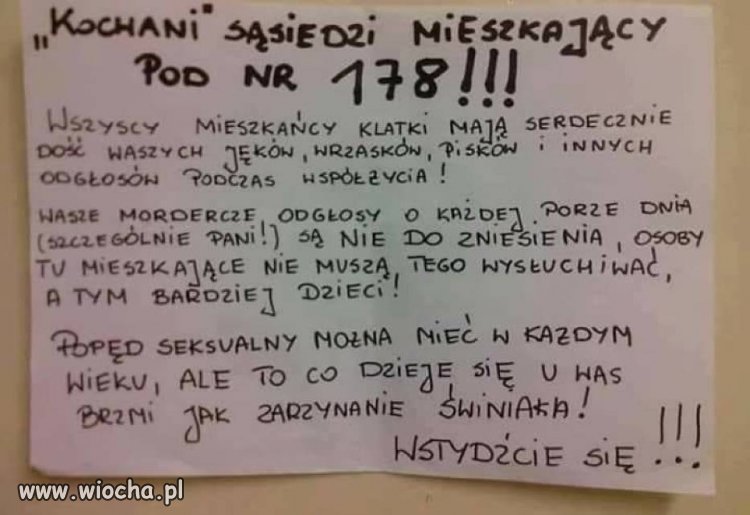 „KOCHANI" SĄSIEDZI MIESZKAJĄCY
POD NR 178!!!
WSZYSCY MIESZKAŃCY KLATKI MAJĄ SERDECZNIE
DOŚĆ WASZYCH JĘKÓW, WRZASKÓW, PISKÓW I INNYCH
ODGŁOSÓW PODCZAS WSPÓŁŻYCIA!
WASZE MORDERCZE ODGŁOSY O KAŻDEJ PORZE DNIA
(SZCZEGÓLNIE PANI!) SĄ NIE DO ZNIESIENIA, OSOBY
TU MIESZKAJĄCE NIE MUSZĄ TEGO WYSŁUCHIWAĆ,
A TYM BARDZIEJ DZIECI!
POPĘD SEKSUALNY MOŻNA MIEĆ W KAŻDYM
WIEKU, ALE TO CO DZIEJE SIĘ U WAS
BRZMI JAK ZARZYNANIE ŚWINIAKA!
WSTYDŹCIE SIĘ !!!
www.wiocha.pl